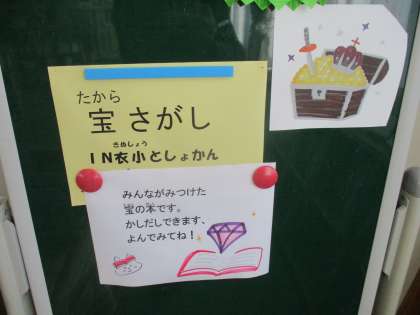 たから
宝 さがし
きぬしょう
IN衣小としょかん
みんながみつけた
宝の本です。
かしだしできます、
よんでみてね!